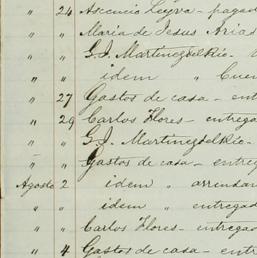 " 24 Ascencio Leyva - pagad
" " Maria de Jesus Arias
" " G. J. Martinez del Rio -
" " idem " Cuen
" 27 Gastos de casa - ent
" 29 Carlos Flores - entrega
" " G. J. Martinez del Rio -
" " Gastos de casa - entre
Agosto 2 idem " arrendam
" " idem " entregad
" " Carlos Flores - entrega
" 4 Gastos de casa - entre